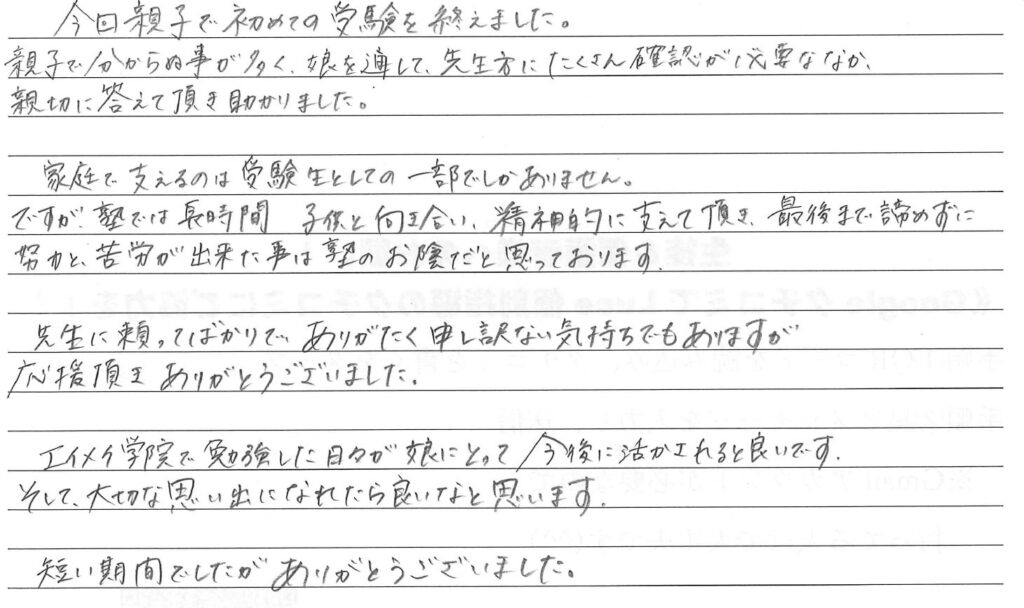 今回親子で初めての受験を終えました。
親子で分からぬ事が多く、娘を通して、先生方にたくさん確認が必要ななか、
親切に答えて頂き助かりました。
家庭で支えるのは受験生としての一部でしかありません。
ですが、塾では長時間 子供と向き合い、精神的に支えて頂き、最後まで諦めずに
努力と、苦労が出来た事は塾のお陰だと思っております。
先生に頼ってばかりで、ありがたく申し訳ない気持ちでもありますが
応援頂き ありがとうございました。
エイメイ学院で勉強した日々が娘にとって今後に活かされると良いです。
そして、大切な思い出になれたら良いなと思います。
短い期間でしたが ありがとうございました。